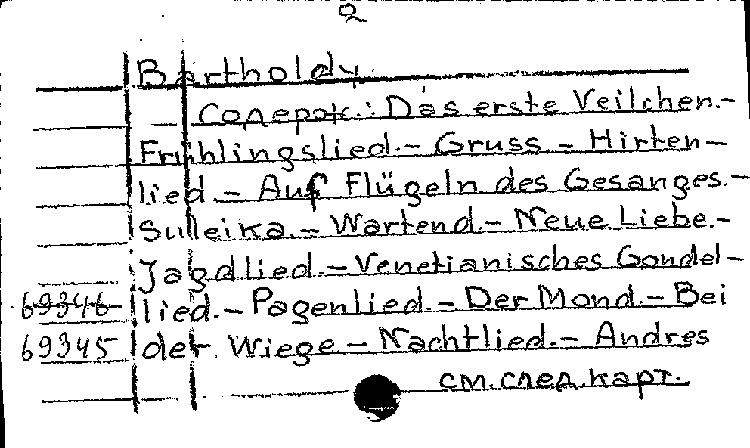 2
Bartholdy
— Содерж.: Das erste Veilchen.–
Frühlingslied.– Gruss – Hirten–
lied.– Auf Flügeln des Gesanges.–
Suleika.– Wartend.– Neue Liebe.–
Jagdlied.– Venetianisches Gondel–
69346 lied.– Pagenlied.– Der Mond.– Bei
69345 der Wiege – Nachtlied.– Andres
см. след. карт.